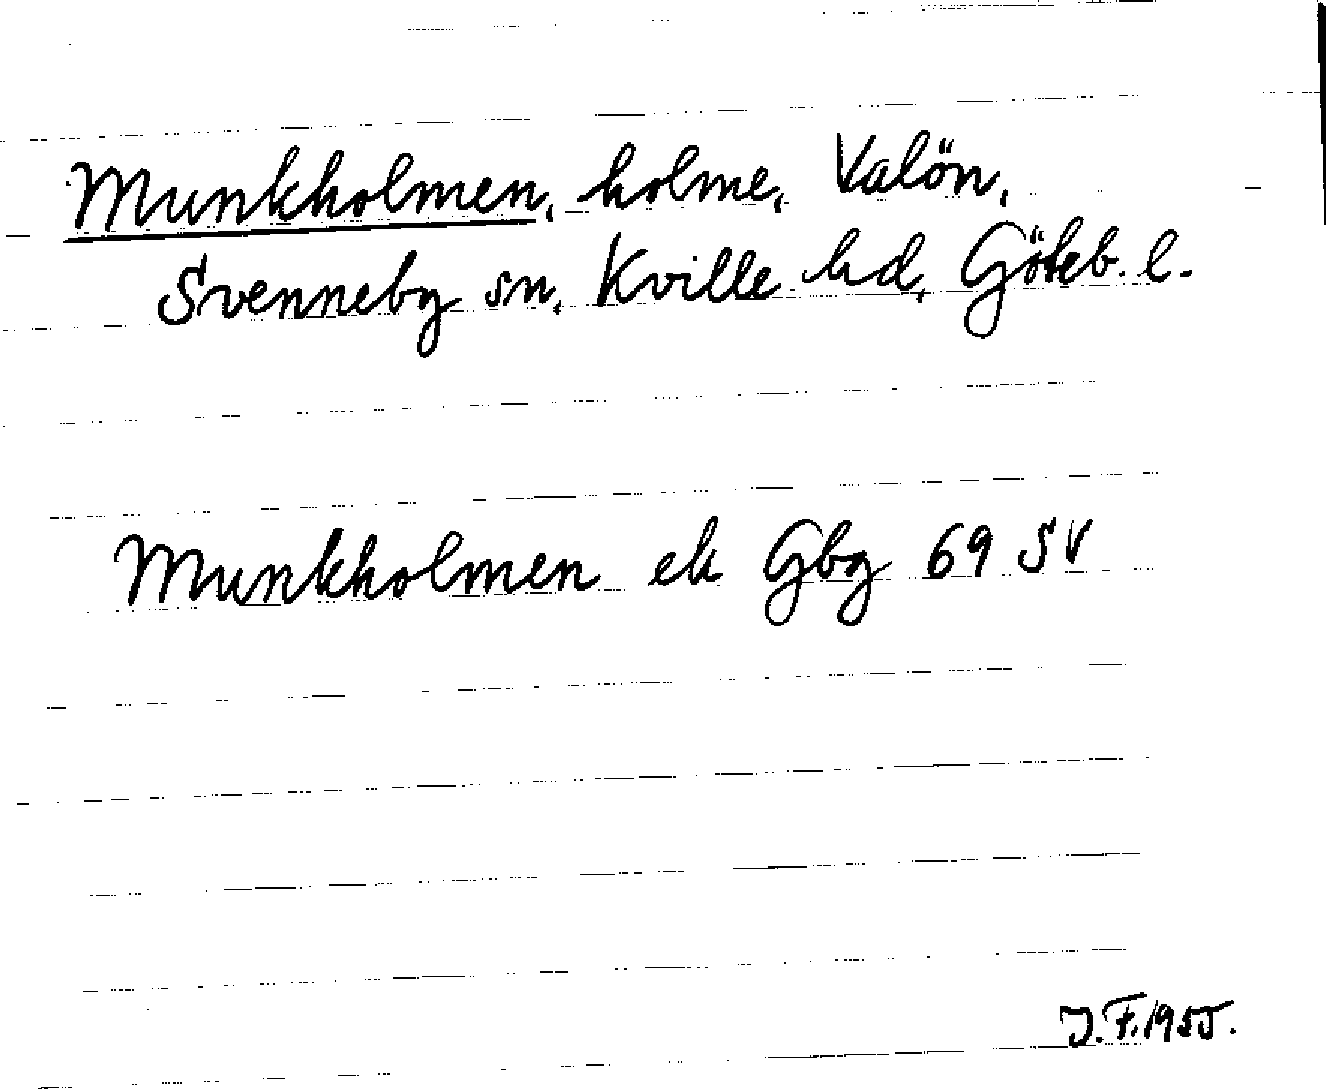 Munkholmen, holme, Valön,
Svenneby sn, Kville hd, Göteb. l.
Munkholmen ek Gbg 69 SV
J. F. 1955.